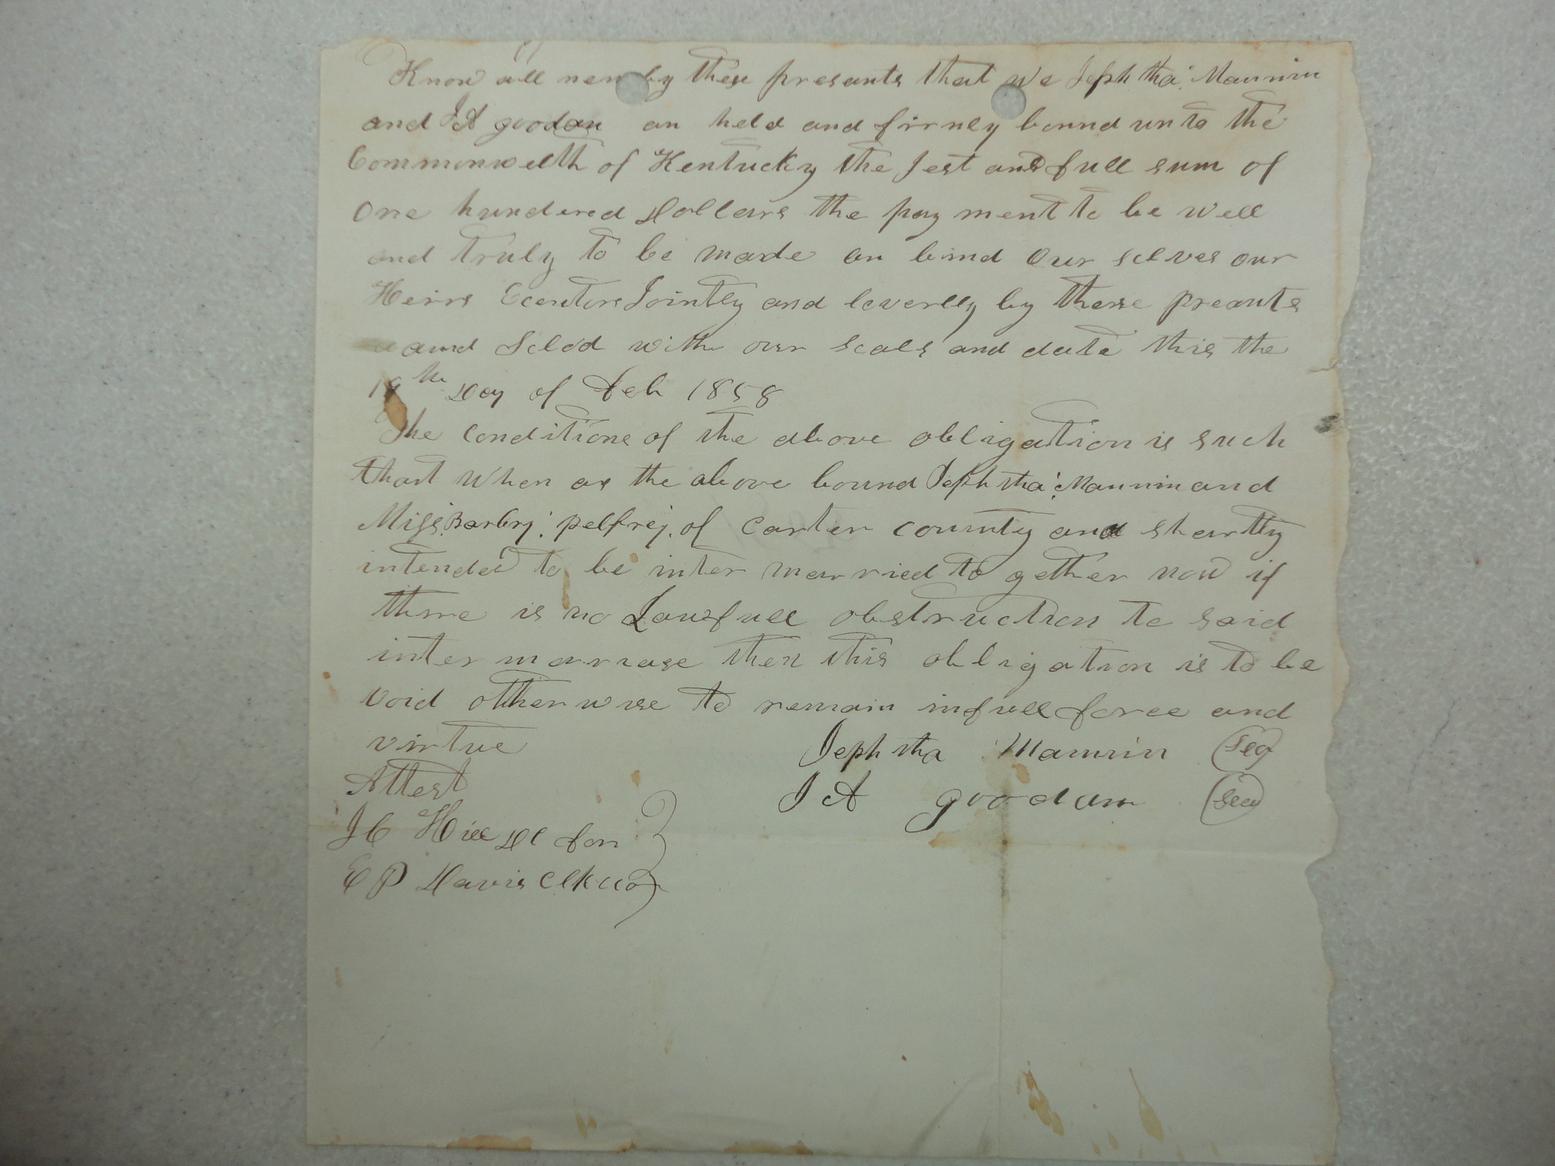 Know all men by these presants that we Jephtha Mannin
and J A goodan an held and firmly bound unto the
Commonwelth of Kentucky the Jest and full sum of
One hundered Dollars the pay ment to be well
and truly to be made an bind Our selves our
Heirs Ecentors Jointly and severlly by these preants
and Seled with our seals and date this the
18th Day of Feb 1858
The Conditions of the above obligation is such
that When as the above bound Jephtha Mannin and
Miss Barbry pelfrey of Carter county and shortly
intended to be inter married to gether now if
there is no Lawfull obstruction to said
inter marriage then this obligation is to be
void other wise to remain in full force and
virtue Jephtha Mannin seal
Attest J A goodan seal
J C Hill DC for
E P Davis Clk